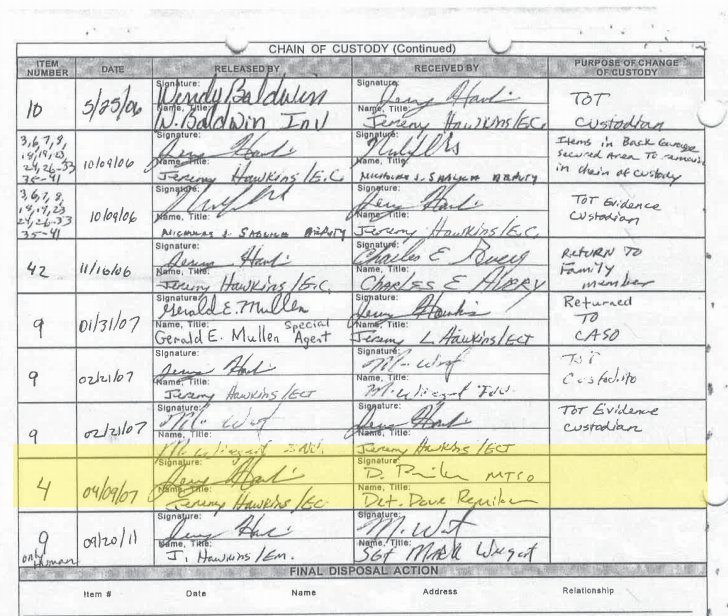 CHAIN OF CUSTODY (Continued)
ITEM NUMBER DATE RELEASED BY RECEIVED BY PURPOSE OF CHANGE OF CUSTODY
10 5/25/06 Signature: Wendy Baldwin Signature: TOT
Name, Title: W. Baldwin Inv Name, Title: Jeremy Hawkins/EC. Custodian
3,6,7,8, Signature: Signature: Items in Back Garage
18,19,23 10/09/06 secured Area To
24,26-33 Name, Title: Name, Title: in chain of custody
35-41 Jeremy Hawkins/E.C. Deputy
3,6,7,8, Signature: Signature:
18,19,23 10/09/06 TOT Evidence
24,26-33 Name, Title: Name, Title: Custodian
35-41 Deputy Jeremy Hawkins/E.C.
42 11/16/06 Signature: Signature: Charles E Avery RETURN TO
Name, Title: Jeremy Hawkins/E.C. Name, Title: Charles E Avery Family member
9 01/31/07 Signature: Gerald E. Mullen Signature: Returned
Name, Title: Special Name, Title: TO
Gerald E. Mullen Agent Jeremy L Hawkins/ECT CASO
9 02/21/07 Signature: Signature: TOT
Name, Title: Jeremy Hawkins/ECT Name, Title: M. Wiegert
9 02/21/07 Signature: Signature: TOT Evidence
Name, Title: Name, Title: Jeremy Hawkins/ECT custodian
4 04/09/07 Signature: Signature: MTSO
Name, Title: Jeremy Hawkins/EC Name, Title: Det. Dave Remiker
9 09/20/11 Signature: Signature:
only Name, Title: J. Hawkins/Em. Name, Title: Sgt Mark Wiegert
FINAL DISPOSAL ACTION
Item # Date Name Address Relationship